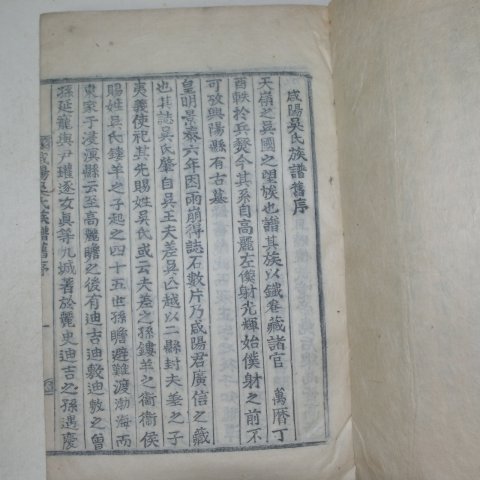 咸陽吳氏族譜舊序
天嶺之吳國之望族也譜其族以鐵卷藏諸官 萬曆丁
酉軼於兵燹今其系自高麗左僕射光輝始僕射之前不
可攷興陽縣有古墓
皇明景泰六年因雨崩得誌石數片乃咸陽君廣信之藏
也其誌吳氏肇自吳王夫差吳亡越以二縣封夫差之子
夷義使祀其先賜姓吳氏或云夫差之孫鏤羊之衛衛侯
賜姓吳氏鏤羊之子起之四十五世孫瞻避難渡渤海而
東家于浸溟縣云至高麗瞻之後有迪吉迪敷迪敦之曾
孫延寵與尹瓘逐攻眞等九城著於麗史迪吉之孫遇慶
咸陽吳氏族譜舊序